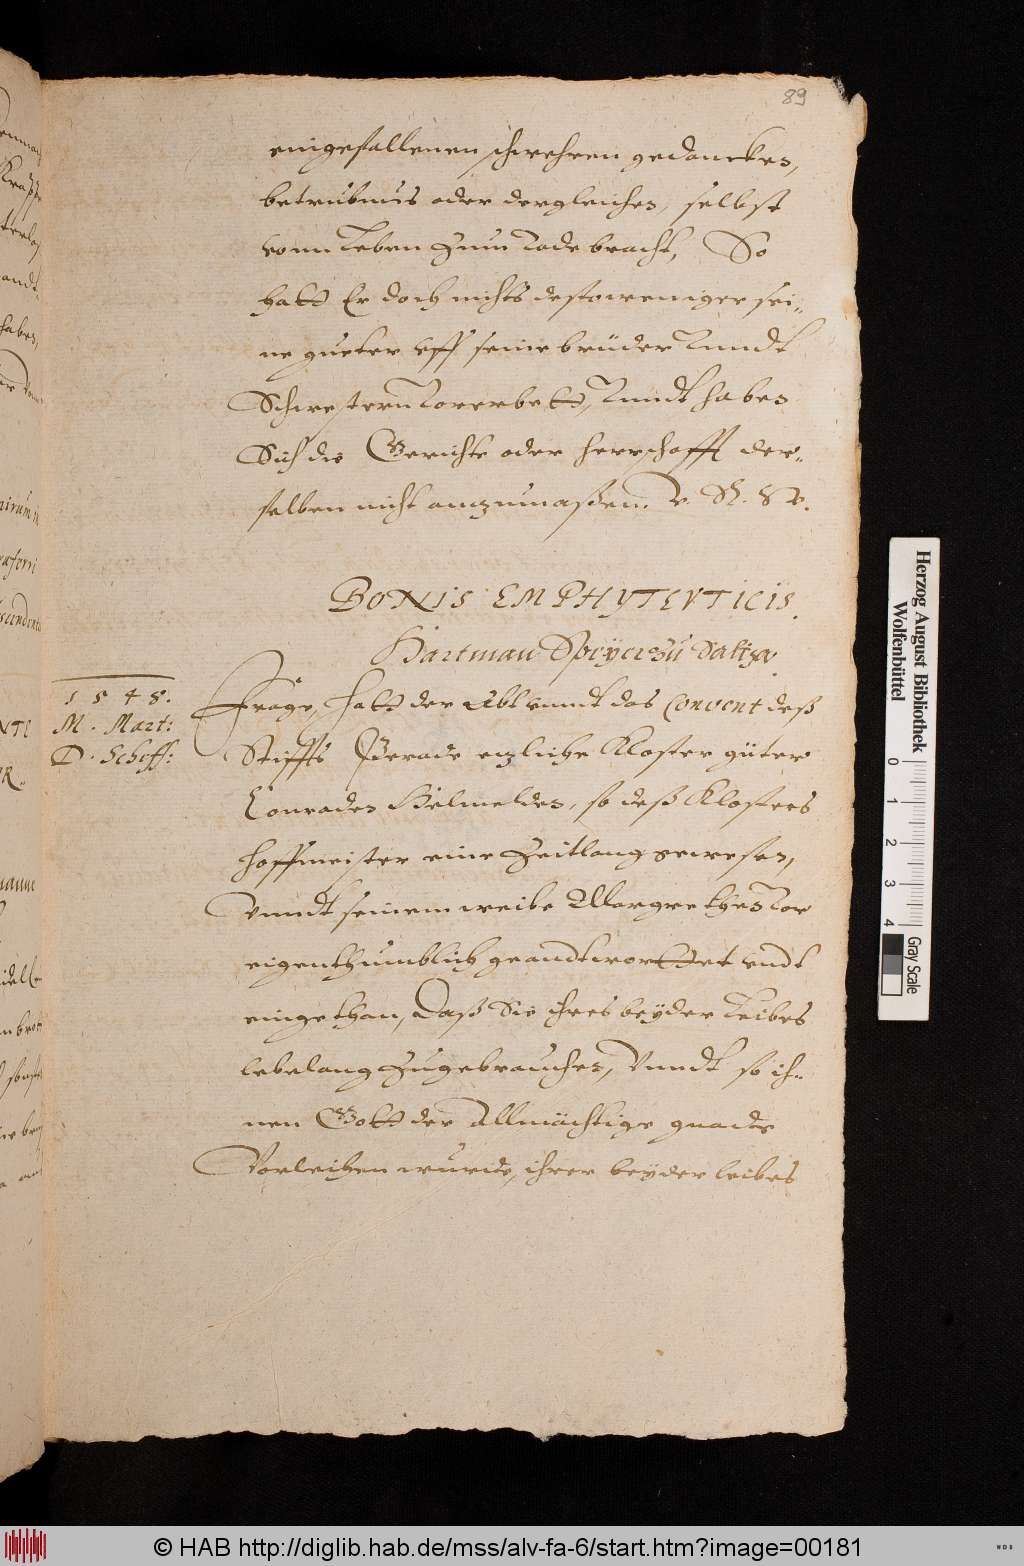 89
eingefallenen schwehren gedancken,
betrubnus oder dergleichen, selbst
vom Leben zum Tode bracht, So
hatt Er doch nichts destoweniger sei-
ne gueter uff seine brüder Vnndt
Schwestern Vorerbett, Vnndt haben
Sich die Gerichte oder herrschafft der-
selben nicht anzumaßen. V. R. W.
BONIS EMPHYTEVTICIS.
Hartman Speyer zu Saltza.
1548.
M. Mart:
D. Scheff:
Frage, hatt der Abt vnndt das Convent deß
Stiffts etzliche Kloster güter
Conraden Helmolden, so deß Klosters
hoffmeister eine Zeitlang gewesen,
Vnndt seinem weibe Margrethen Vor
eigenthumblich geandtworttet vndt
eingethan, Daß Sie ihres beyder Leibes
lebelang Zugebrauchen, Vnndt so ih-
nen Gott der Allmächtige gnade
Vorleihen wurde, ihrer beyder leibes
Herzog August Bibliothek
Wolfenbüttel
0 1 2 3 4
Gray Scale
© HAB http://diglib.hab.de/mss/alv-fa-6/start.htm?image=00181